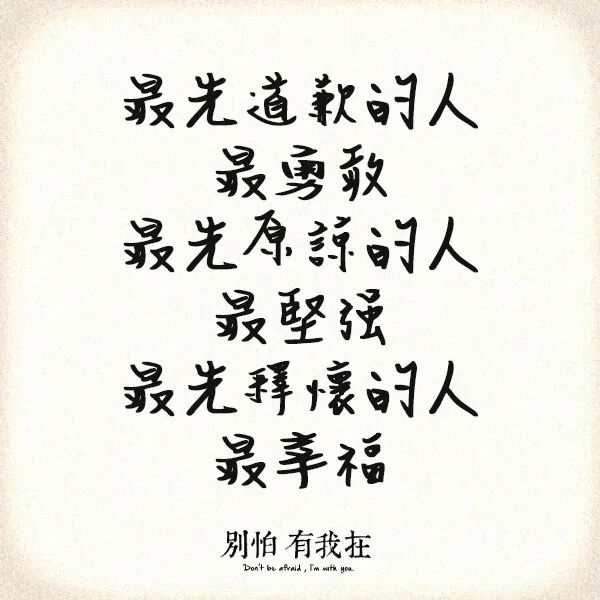 最先道歉的人
最勇敢
最先原諒的人
最堅强
最先釋懷的人
最幸福
別怕 有我在
Don't be afraid , I'm with you.